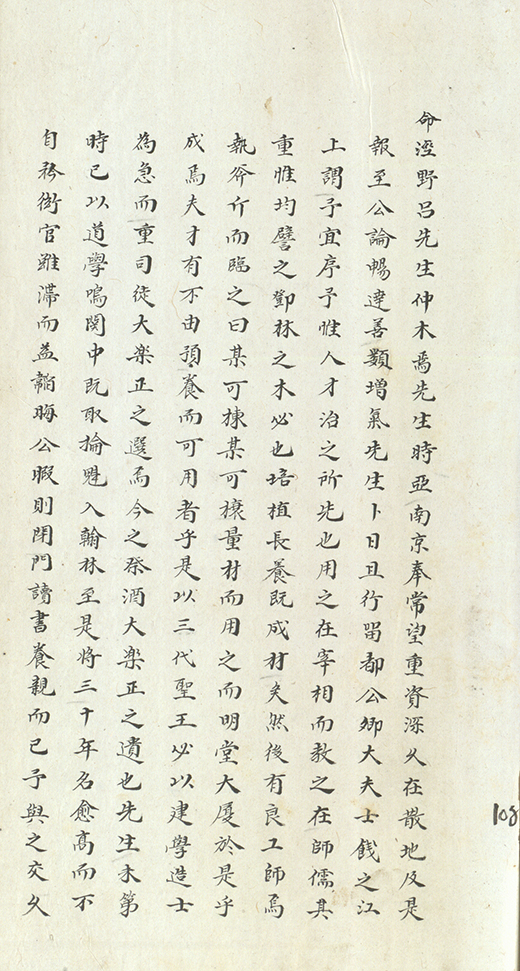 命涇野呂先生仲木焉先生時亞南京奉常望重資深久在散地及是
報至公論暢達善類增氣先生卜日且行留都公卿大夫士餞之江
上謂予宜序予惟人才治之所先也用之在宰相而教之在師儒其
重惟均譬之鄧林之木必也培植長養既成材矣然後有良工師焉
執斧斤而臨之曰某可棟某可榱量材而用之而明堂大廈於是乎
成焉夫才有不由預養而可用者乎是以三代聖王必以建學造士
為急而重司徒大楽正之選焉今之祭酒大楽正之遺也先生未第
時已以道學鳴関中既取掄魁入翰林至是將三十年名愈高而不
自矜衒官雖滯而益韜晦公暇則閉門讀書養親而已予與之交久
108